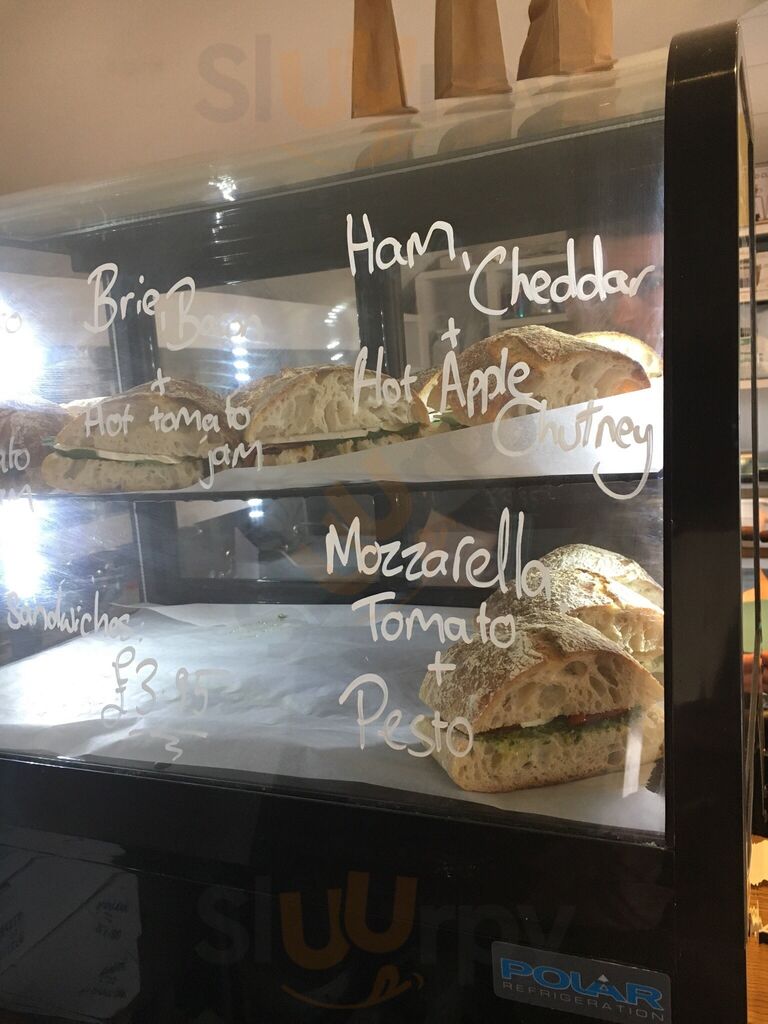 Sluurpy
Ham,
Cheddar
+
Hot Apple
Chutney
Brie, Bacon
+
Hot tomato
jam
Mozzarella
Tomato
+
Pesto
Sandwiches
£3.95
Sluurpy
POLAR
REFRIGERATION